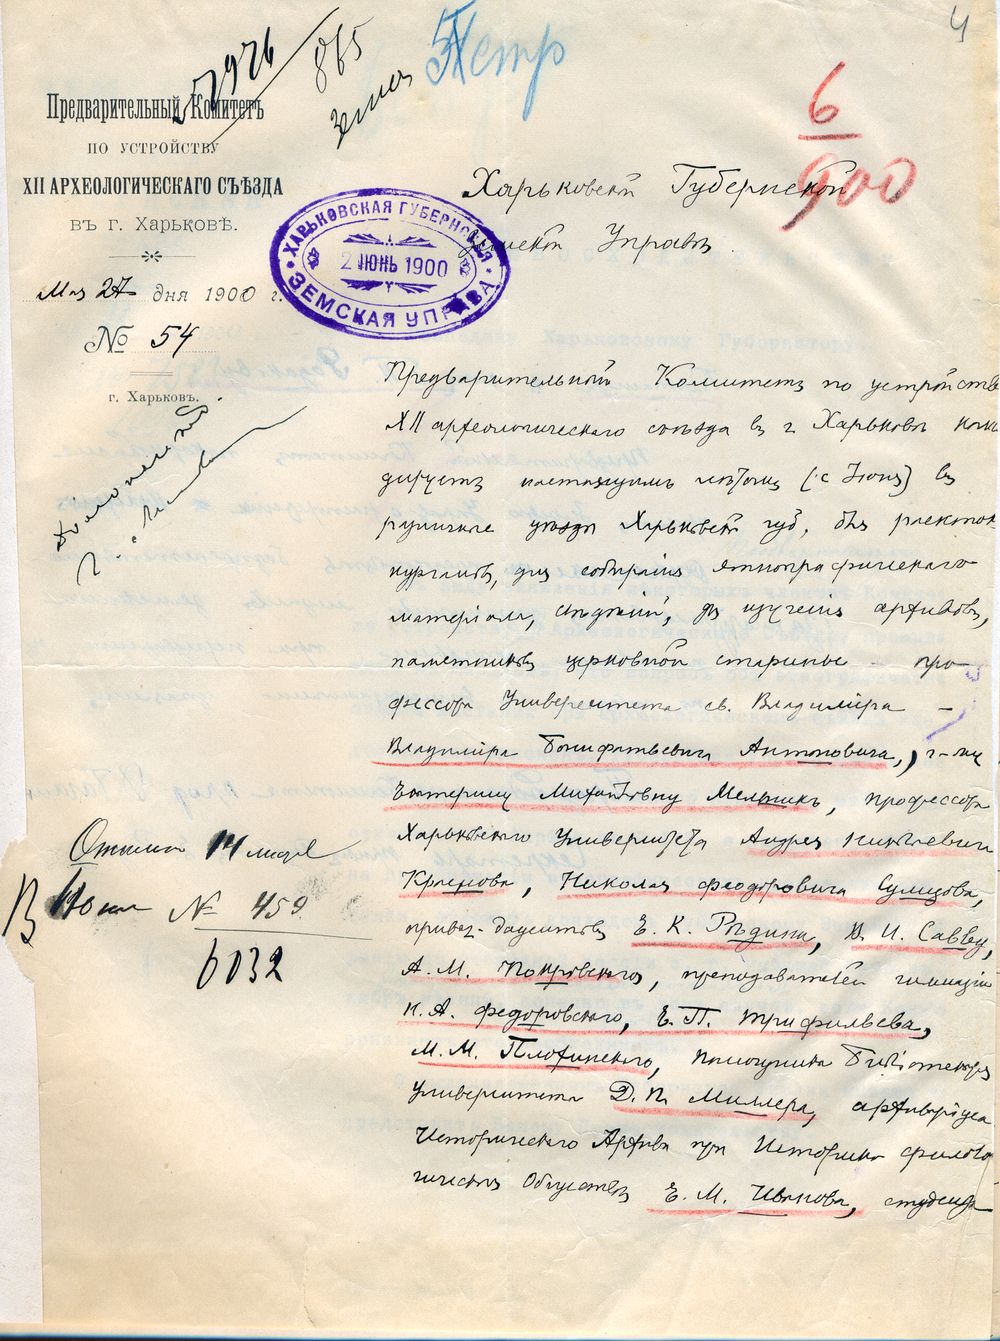 4
7976
865
Петр
6
900
Предварительный Комитетъ
ПО УСТРОЙСТВУ
XII АРХЕОЛОГИЧЕСКАГО СЪѢЗДА
въ г. Харьковѣ.
Мая 27 дня 1900 г.
№ 54
г. Харьковъ.
ХАРЬКОВСКАЯ ГУБЕРНСКАЯ
2 ІЮНЬ 1900
ЗЕМСКАЯ УПРАВА
Харьковской Губернской
Земской Управѣ.
Предварительный Комитетъ по устройству
XII археологическаго съѣзда въ г. Харьковѣ коман
дируетъ настоящимъ лѣтомъ (с Іюня) въ
различные уѣзды Харьковской губ. для раскопок
кургановъ, для собиранія этнографическаго
матеріала, свѣдѣній, для изученія архивовъ,
памятниковъ церковной старины – про-
фессора Университета св. Владиміра –
Владиміра Бонифатьевича Антоновича, г-жу
Екатерину Мельникъ, профессора
Харьковскаго Университета Андрея Николаевича
Краснова, Николая Феодоровича Сумцова,
приват-доцентовъ Е. К. Рѣдина, В. И. Савву,
А. М. Покровскаго, преподавателей гимназіи
К. А. Федоровскаго, Е. П. Трифильева,
М. М. Плохинскаго, помощника Библіотекаря
Университета Д. П. Миллера, архиваріуса
Историческаго Архива при Историко филоло
гическомъ Обществѣ Е. М. Иванова, студента
№ 459
6032